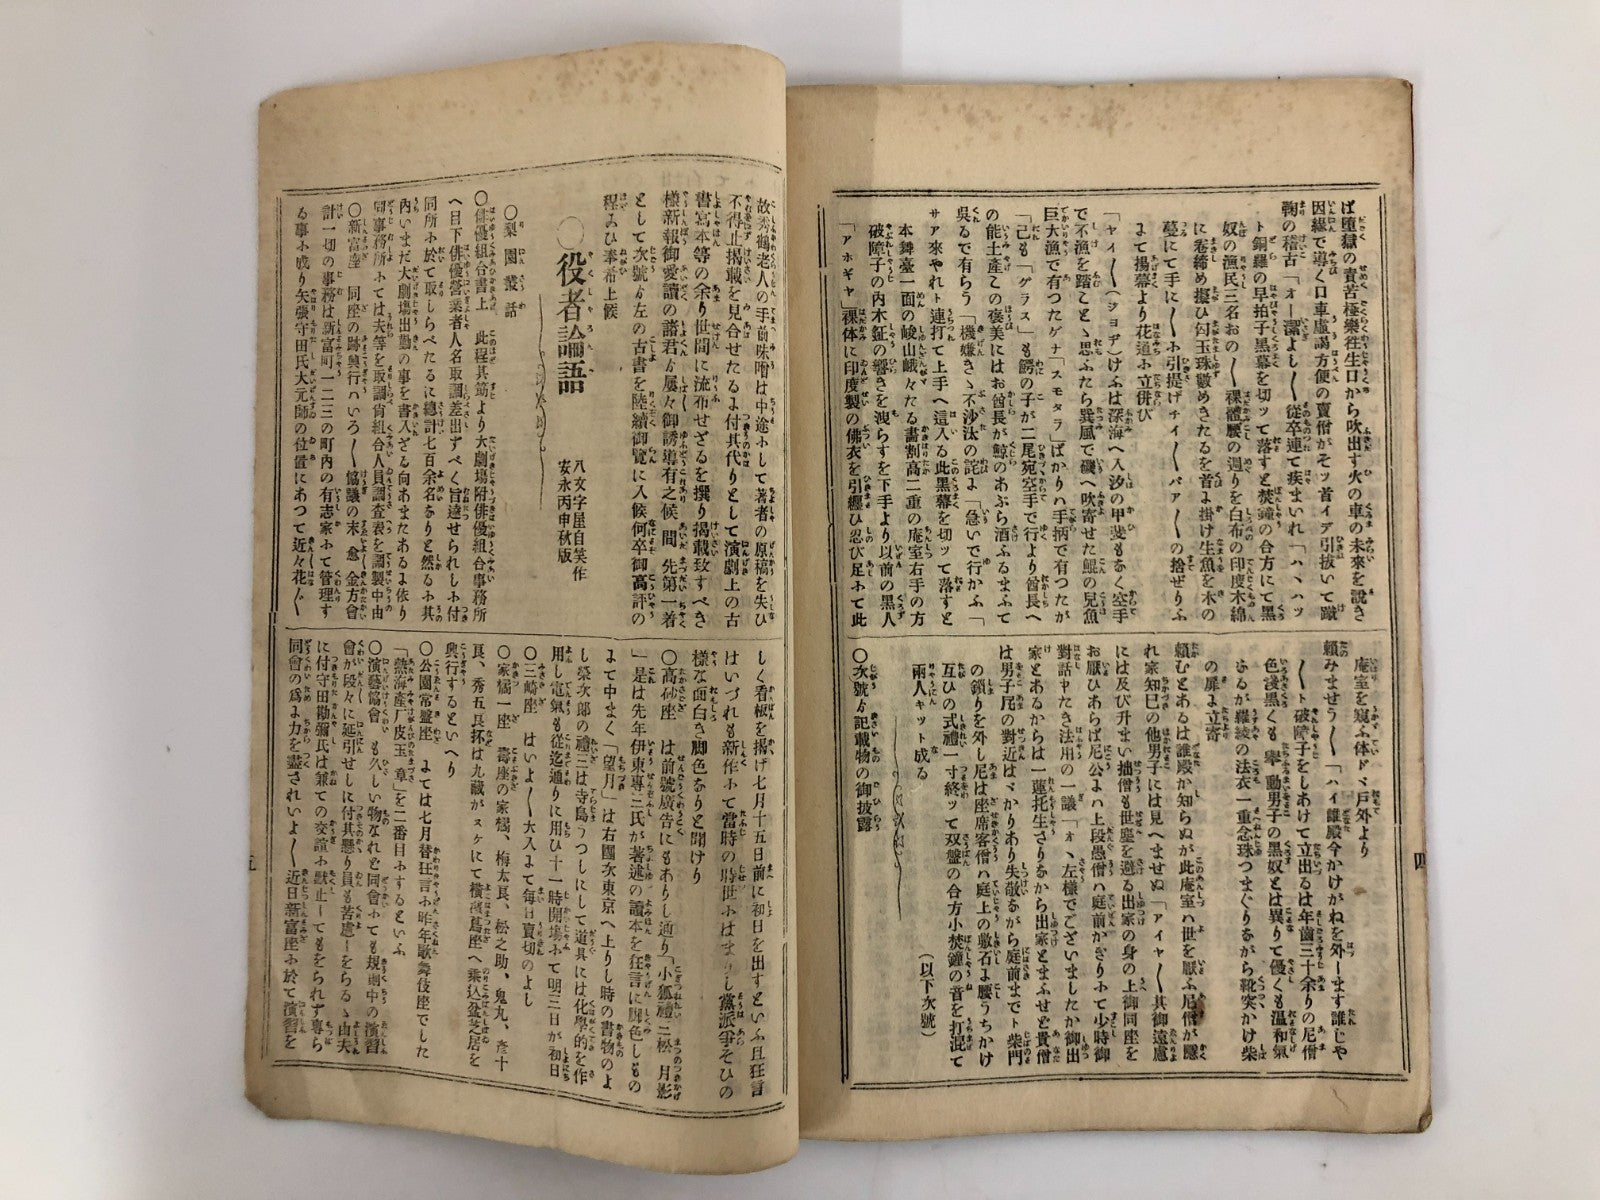 ば堕獄の責苦極樂往生口から吹出す火の車の未來を説き
因縁で導く口車虚謁方便の賣僧がそツ首イデ引抜いて蹴
鞠の稽古「オー潔よし〳〵從卒連て疾まいれ「ハヽハツ
ト銅羅の早拍子黒幕を切ツて落すと焚鐘の合方にて黒
奴の漁民三名おの〳〵裸體腰の廻りを白布の印度木綿
に卷締め擬ひ勾玉珠數めきたるを首よ掛け生魚を木の
蔓にて手に〳〵ふ引提げチイ〳〵パア〳〵の捨ぜりふ
よて揚幕より花道ふ立併び
「ヤイ〳〵(ジヨヂ)けふは深海へ入汐の甲斐もなく空手
で不漁を踏ことゝ思ふたら巽風で磯へ吹寄せた鯤の兒魚
巨大漁で有つたゲナ「スモタラ」ばかりハ手柄で有つたが
「己も「ゲラス」も鰐の子が二尾宛空手で行より酋長へ
の能土產この褒美にはお酋長が鯨のあぶら酒ふるまふて
呉るで有らう「機嫌きゝ不沙汰の詫よ「急いで行かふ「
サア來やれト連打て上手へ這入る此黒幕を切ツて落すと
本舞臺一面の峻山峨々たる畵割高二重の庵室右手の方
破障子の内木鉦の響きを洩らすを下手より以前の黒人
「アホギヤ」裸体に印度製の佛衣を引纒ひ忍び足ふて此
庵室を窺ふ体ドヾ戸外より
頼みませう〳〵「ハイ誰殿今かけがねを外ーます誰じや
〳〵ト破障子をしあけて立出るは年齒三十余りの尼僧
色淺黒くも擧動男子の黒奴とは異りて優くも温和氣
なるが羅綾の法衣一重念珠つまぐりながら靴突かけ柴
の扉よ立寄
頼むとあるは誰殿か知らぬが此庵室ハ世を厭ふ尼僧が隠
れ家知巳の他男子には見へませぬ「アイヤ〳〵其御遠慮
には及び升まい拙僧も世塵を避る出家の身の上御同座を
お厭ひあらば尼公よハ上段愚僧ハ庭前かぎりふて少時御
對話申たき法用の一議「オヽ左様でございましたか御出
家とあるからは一蓮托生さりながら出家とまふせど貴僧
は男子尼の對近はヾかりあり失敬ながら庭前までト柴門
の鎖りを外し尼は座席客僧ハ庭上の敷石よ腰うちかけ
互ひの式禮一寸終ツて双盤の合方小焚鐘の音を打混て
兩人キツト成る
(以下次號)
〇次號ゟ記載物の御披露
四
故秀鶴老人の手前味噌は中途ふして著者の原稿を失ひ
不得止掲載を見合せたるよ付其代りとして演劇上の古
書寫本等の余り世間に流布せざるを撰り掲載致すべき
様新報御愛讀の諸君ゟ屡々御誘導有之候間 先第一着
として次號ゟ左の古書を陸續御覽に入候何卒御高評の
程ねがひ奉希上候
〇役者論語
八文字屋自笑作
安永丙申秋版
〇梨園叢話
〇俳優組合書上 此程其筋より大劇場附俳優組合事務所
へ目下俳優營業者人名取調差出すべく旨達せられしふ付
同所ふ於て取しらべたるに總計七百余名なりと然るふ其
内いまだ大劇塲出勤の事を書入ざる向あまたあるよ依り
同事務所ふては夫等を取調肯組合人員調査表を調製中由
〇新富座 同座の跡興行ハいろ〳〵協議の末 愈 金方會
計一切の事務は新富町一二三の町内の有志家ふて管理す
る事ふ成り矢張守田氏大元師の位置にあつて近々花〴〵
しく看板を揚げ七月十五日前に初日を出すといふ且狂言
はいづれも新作ふて當時の時世ふはまりし黨派爭そひの
様な面白き脚色なりと聞けり
〇高砂座 は前號廣告にもありし通り「小狐禮三松 月影
」是は先年伊東專三氏が著述の讀本を狂言に脚色しもの
よて中まく「望月」は右團次東京へ上りし時の書物のよ
し榮次郎の禮三は寺島うつしにして道具には化學的を作
用し電氣も從迄通りに用ひ十一時開塲ふて明三日が初日
〇三崎座 はいよ〳〵大入よて每日賣切のよし
〇家橘一座 壽座の家橘、梅太良、松之助、鬼丸、彥十
良、秀五良抔は九藏がスケにて橫濱蔦座へ乘込盆芝居を
興行するといへり
〇公園常盤座 よては七月替狂言ふ昨年歌舞伎座でした
「熱海産尸皮玉章」を二番目ふするといふ
〇演藝協會 も久しい物なれど同會ふても規則中の演習
會が段々に延引せしに付其懸り員も苦慮ーをらるゝ由夫
に付守田勘彌氏は兼ての交誼ふ默止ーてもをられず專ら
同會の爲よ力を盡されいよ〳〵近日新富座ふ於て演習を
五